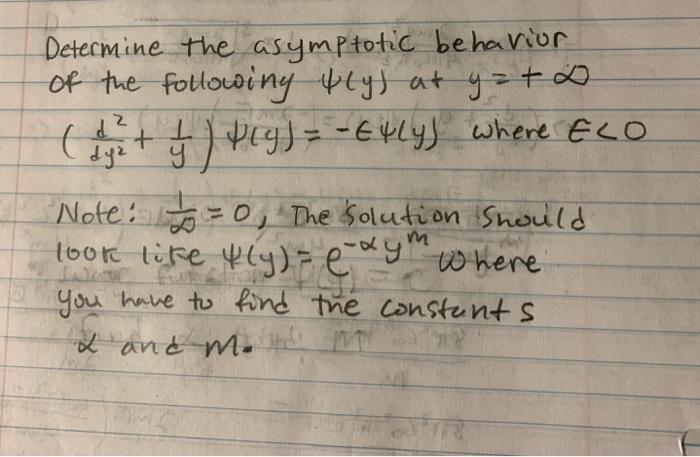 Determine the asymptotic behavior
of the following ψ(y) at y = + ∞
( d²/dy² + 1/y ) ψ(y) = - ϵψ(y) where ϵ<0
Note: 1/∞ = 0, The Solution Should
look like ψ(y) = e^(-αy^m) where
you have to find the constants
α and m.